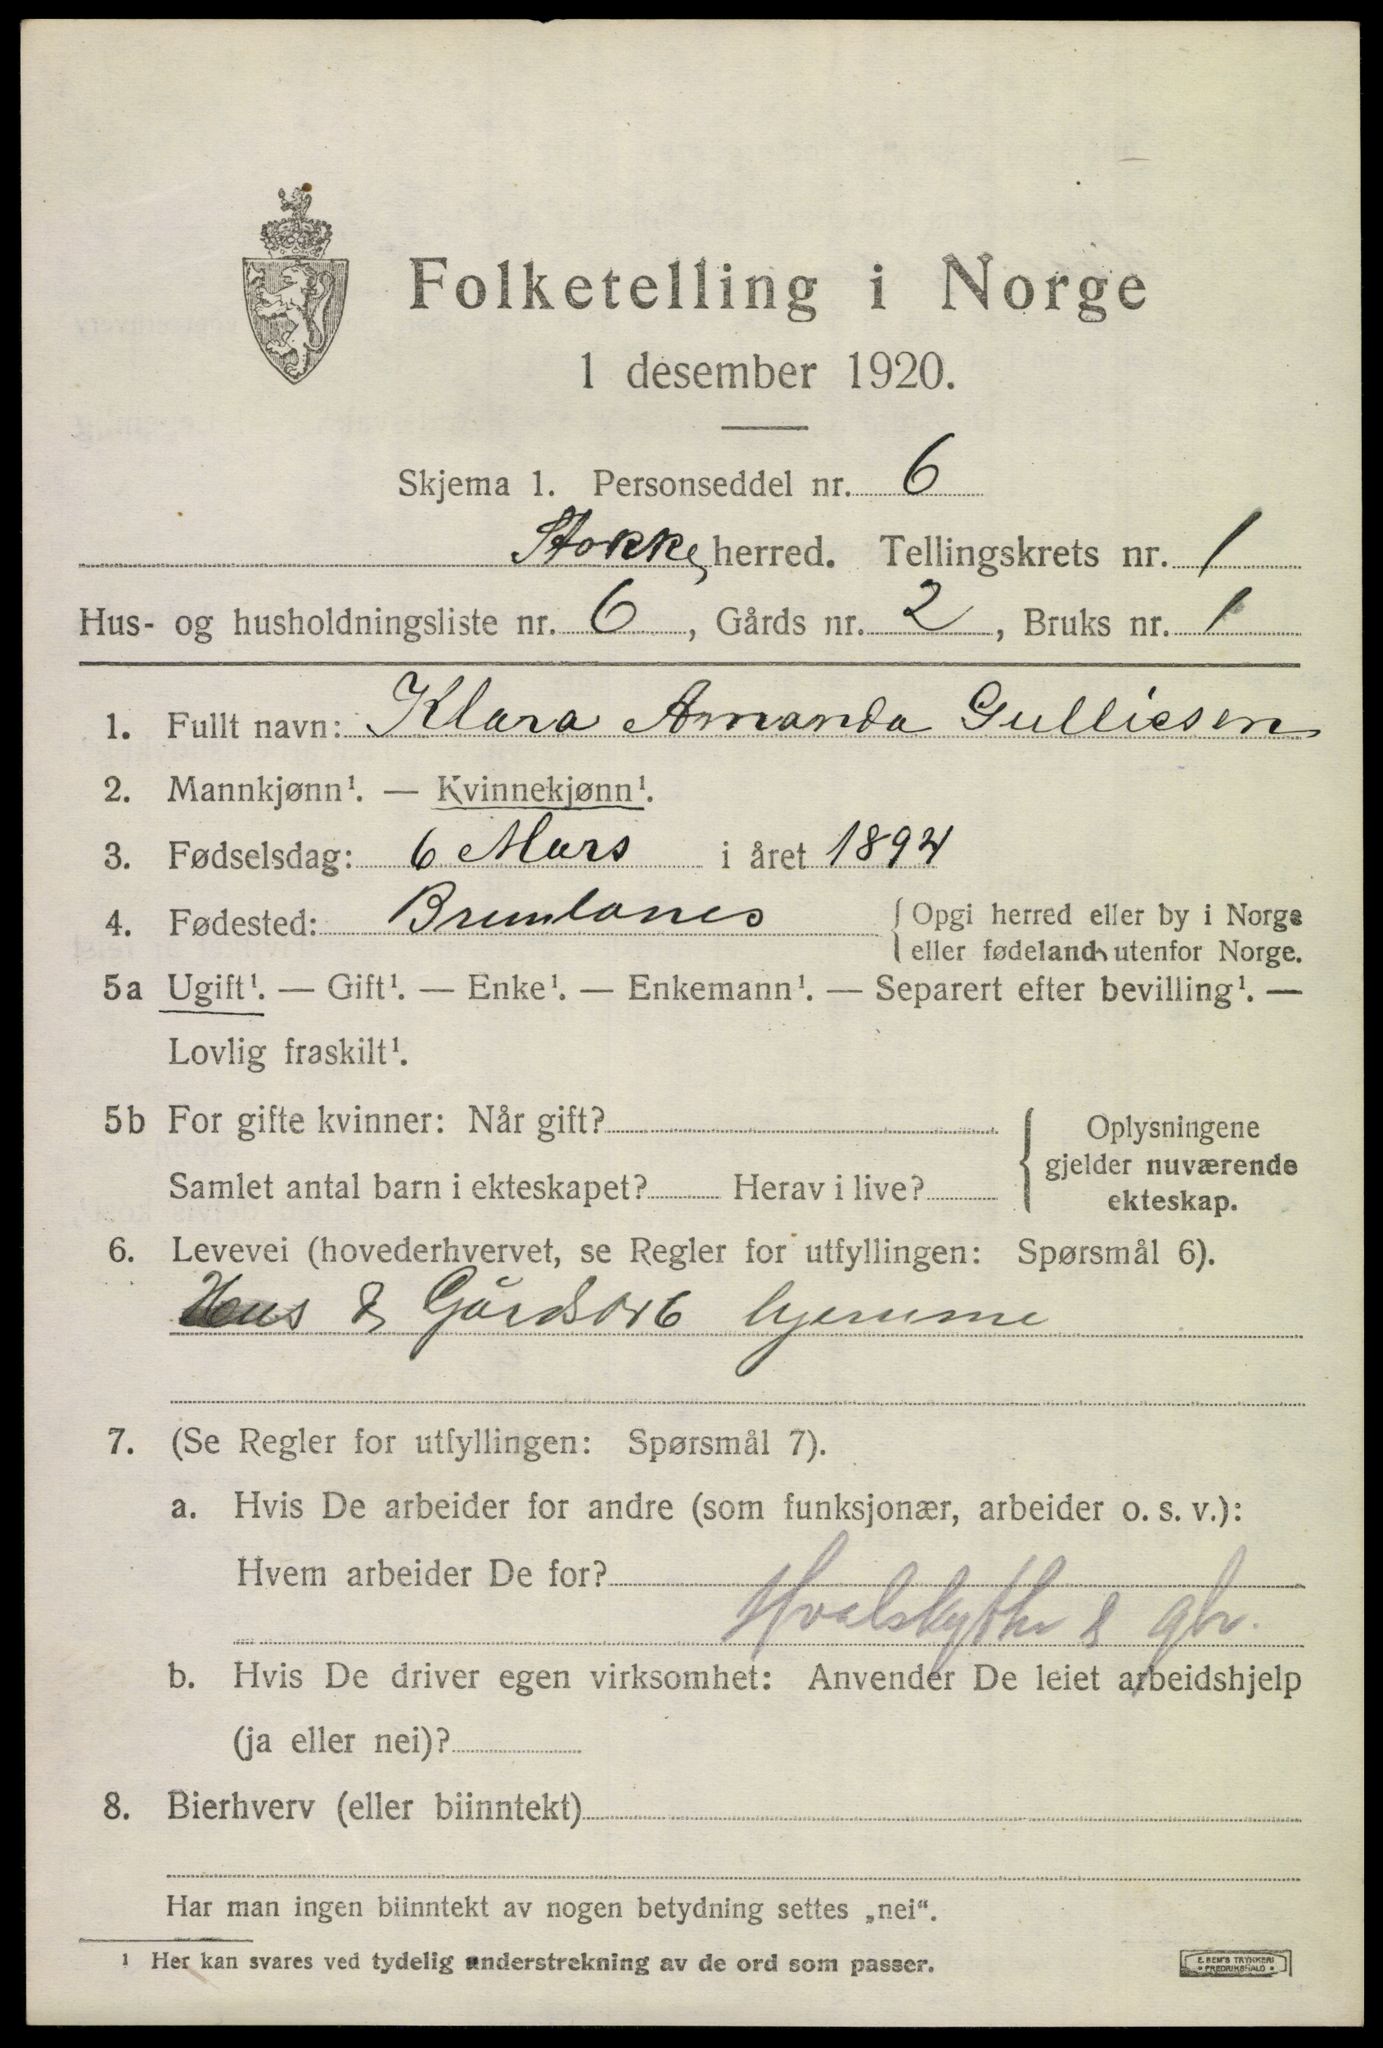 Folketelling i Norge
1 desember 1920.
Skjema 1. Personseddel nr. 6
Stokke herred. Tellingskrets nr. 1
Hus- og husholdningsliste nr. 6, Gårds nr. 2, Bruks nr. 1
1. Fullt navn: Klara Amanda Gulliesen
2. Mannkjønn¹. — Kvinnekjønn¹.
3. Fødselsdag: 6 Mars i året 1894
4. Fødested: Brunlanes {Opgi herred eller by i Norge
eller fødeland utenfor Norge.
5a Ugift¹. — Gift¹. — Enke¹. — Enkemann¹. — Separert efter bevilling¹. —
Lovlig fraskilt¹.
5b For gifte kvinner: Når gift?
Samlet antal barn i ekteskapet? Herav i live?
Oplysningene
gjelder nuværende
ekteskap.
6. Levevei (hovederhvervet, se Regler for utfyllingen: Spørsmål 6).
Hus & Gårdsarb hjemme
7. (Se Regler for utfyllingen: Spørsmål 7).
a. Hvis De arbeider for andre (som funksjonær, arbeider o. s. v.):
Hvem arbeider De for?
Hvalskytter & gbr.
b. Hvis De driver egen virksomhet: Anvender De leiet arbeidshjelp
(ja eller nei)?
8. Bierhverv (eller biinntekt)
Har man ingen biinntekt av nogen betydning settes „nei“.
¹ Her kan svares ved tydelig understrekning av de ord som passer.
E. SEM'S TRYKKERI
FREDRIKSHALD